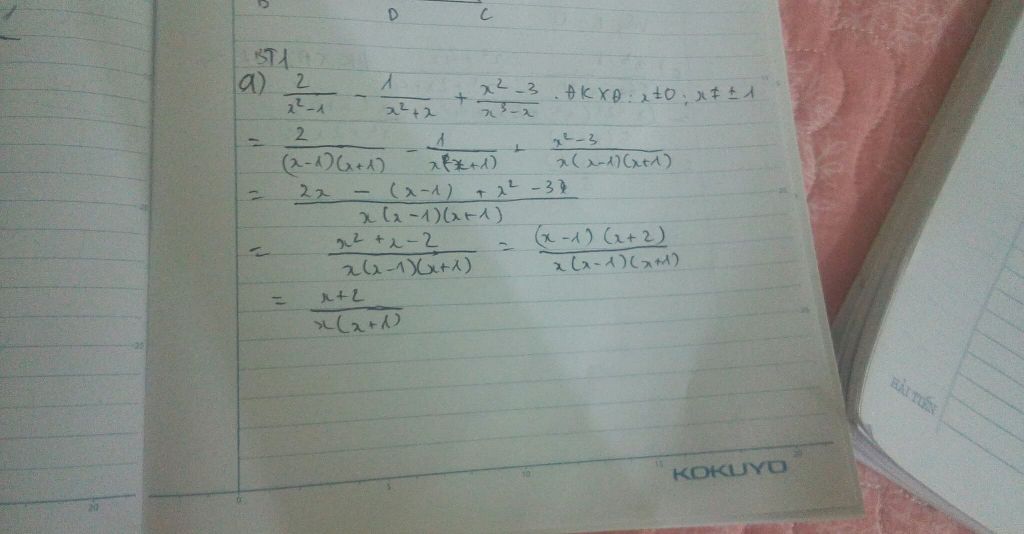 B
D C
BT1
a) 2/(x²-1) - 1/(x²+x) + (x²-3)/(x³-x) . ĐKXĐ: x≠0; x≠±1
= 2/((x-1)(x+1)) - 1/(x(x+1)) + (x²-3)/(x(x-1)(x+1))
= (2x - (x-1) + x² - 3)/(x(x-1)(x+1))
= (x²+x-2)/(x(x-1)(x+1)) = ((x-1)(x+2))/(x(x-1)(x+1))
= (x+2)/(x(x+1))
HẢI TIẾN
KOKUYO
0 5 10 15 20
20